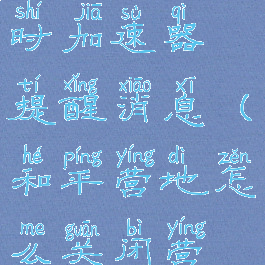 shí jiā sù qì
时加速器
tí xǐng xiāo xī
提醒消息(
hé píng yíng dì zěn
和平营地怎
me guān bì yíng
么关闭营